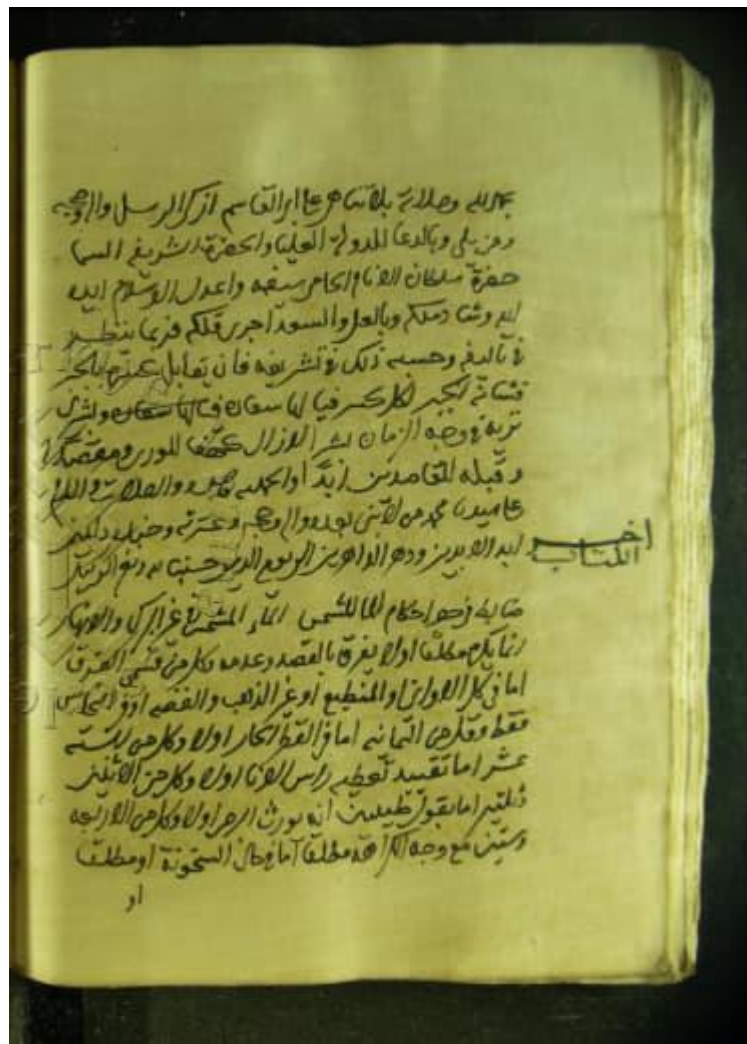 بحمد الله وصلاته بلا تناهي على ابي القاسم ازكى الرسل وآله وصحبه
ومن يلي وبالدعا للدولة العليا والحضرة الشريفة السما
حضرة سلطان الانام الحامي بسيفه واعدل الاسلام ايده
الله وبالعدل والسعد اجرى فلكه فربما ينظر
في تأليفه وحسبه ذلك في تشريفه فان يقابل بالجبر
فشانه الجبر لكل كسر فيا لها
تربه في وجه الزمان بشر لا زال كهفا للورى ومقصدا
وقبلة للقاصدين ابدا والحمد لله والصلاة والسلام
على سيدنا محمد من لا نبي بعده وآله وصحبه وعترته
ابد الابدين ودهر الداهرين الى يوم الدين حسبنا الله ونعم الوكيل
اخر
الكتاب
ضابط في حصر احكام الماء المشمس الماء المشمس في غير البرك والانهار
انما يكره مطلقا اولا يفرق بالقصد وعدمه وكل من قسمي الفرق
اما في كل الاواني او المنطبع او غير الذهب والفضة او في النحاس
فقط وكل من الثمانية اما في القطر الحار اولا وكل من الستة
عشر اما بقيد تغطية راس الاناء اولا وكل من الاثنين
وثلاثين اما بقول طبيبين انه يورث البرص اولا وكل من الاربعة
وستين مع وجه الكراهة مطلقا اما في حال السخونة او مطلقا
او